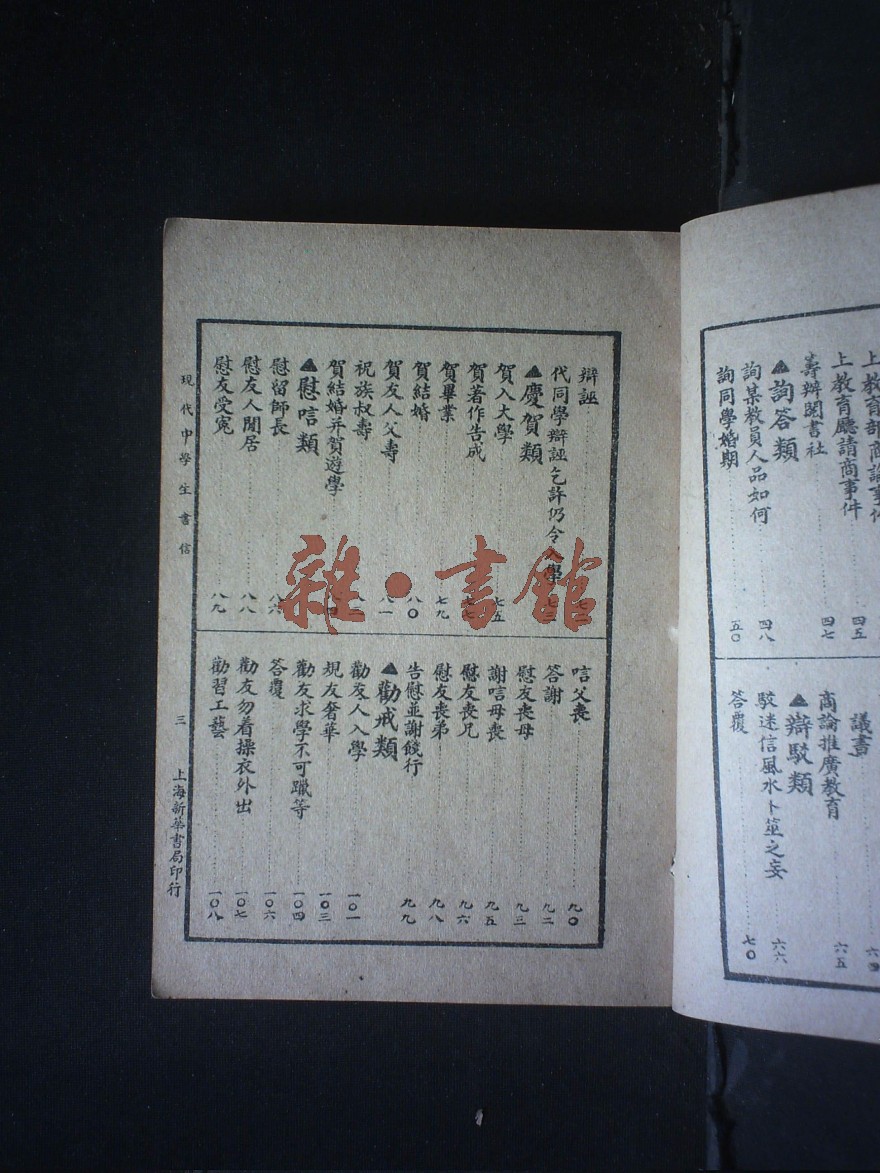 上教育廳請商事件
四五
籌辦閱書社
四七
▲詢答類
詢某教員人品如何
四八
詢同學婚期
五〇
議書
商論推廣教育
六五
▲辯駁類
駁迷信風水卜筮之妄
六六
答覆
七〇
辯誣
代同學辯誣乞許仍令入學
▲慶賀類
賀入大學
七五
賀著作告成
賀畢業
七九
賀結婚
八〇
賀友人父壽
八一
祝族叔壽
賀結婚并賀遊學
▲慰唁類
慰留師長
八六
慰友人閒居
八八
慰友受寃
八九
唁父喪
九〇
答謝
九二
慰友喪母
九三
謝唁母喪
九五
慰友喪兄
九六
慰友喪弟
九八
告慰並謝餞行
九九
▲勸戒類
勸友人入學
一〇一
規友奢華
一〇三
勸友求學不可躐等
一〇四
答覆
一〇六
勸友勿着操衣外出
一〇七
勸習工藝
一〇八
現代中學生書信
三
上海新華書局印行
雜·書館